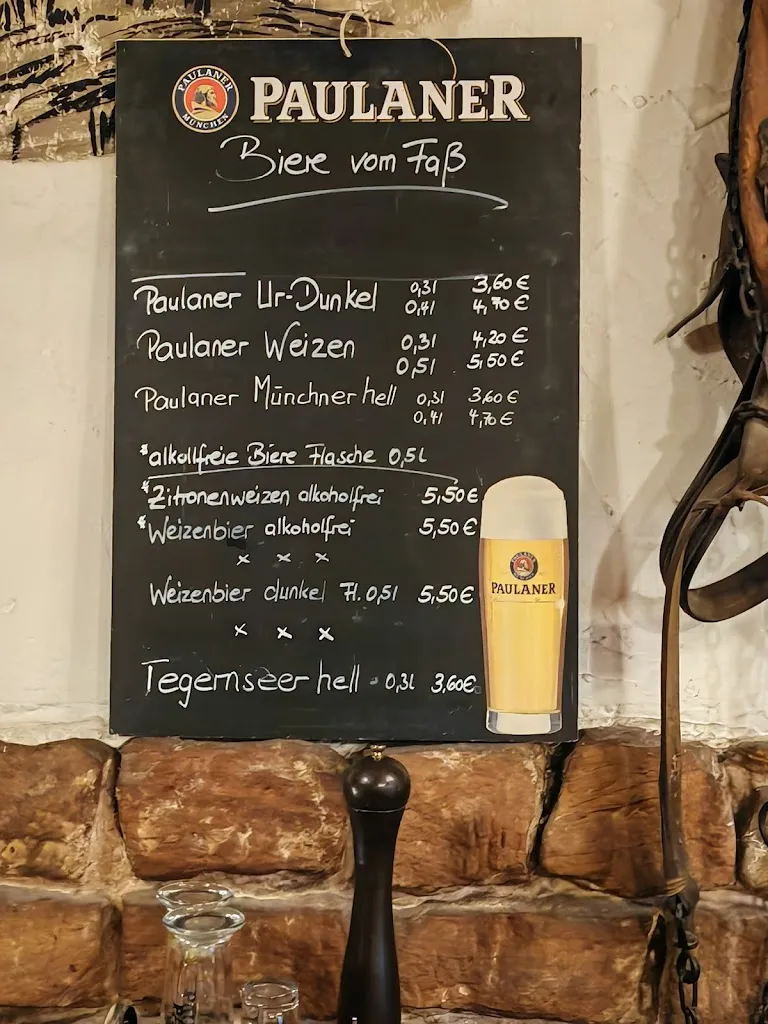 PAULANER
MÜNCHEN
PAULANER
Biere vom Faß
Paulaner Ur-Dunkel 0,3l 3,60 €
0,4l 4,70 €
Paulaner Weizen 0,3l 4,20 €
0,5l 5,50 €
Paulaner Münchner hell 0,3l 3,60 €
0,4l 4,70 €
*alkollfreie Biere Flasche 0,5L
*Zitronenweizen alkoholfrei 5,50 €
*Weizenbier alkoholfrei 5,50 €
x x x
Weizenbier dunkel Fl. 0,5l 5,50 €
x x x
Tegernseer hell - 0,3L 3,60€
PAULANER